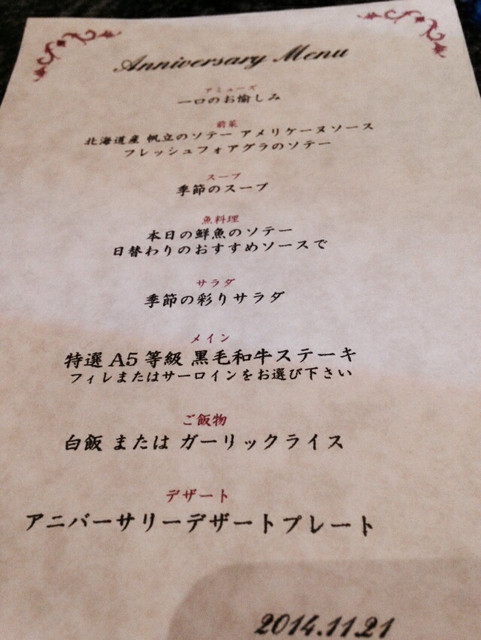 Anniversary Menu
アミューズ
一口のお愉しみ
前菜
北海道産 帆立のソテー アメリケーヌソース
フレッシュフォアグラのソテー
スープ
季節のスープ
魚料理
本日の鮮魚のソテー
日替わりのおすすめソースで
サラダ
季節の彩りサラダ
メイン
特選 A5 等級 黒毛和牛ステーキ
フィレまたはサーロインをお選び下さい
ご飯物
白飯 または ガーリックライス
デザート
アニバーサリーデザートプレート
2014.11.21